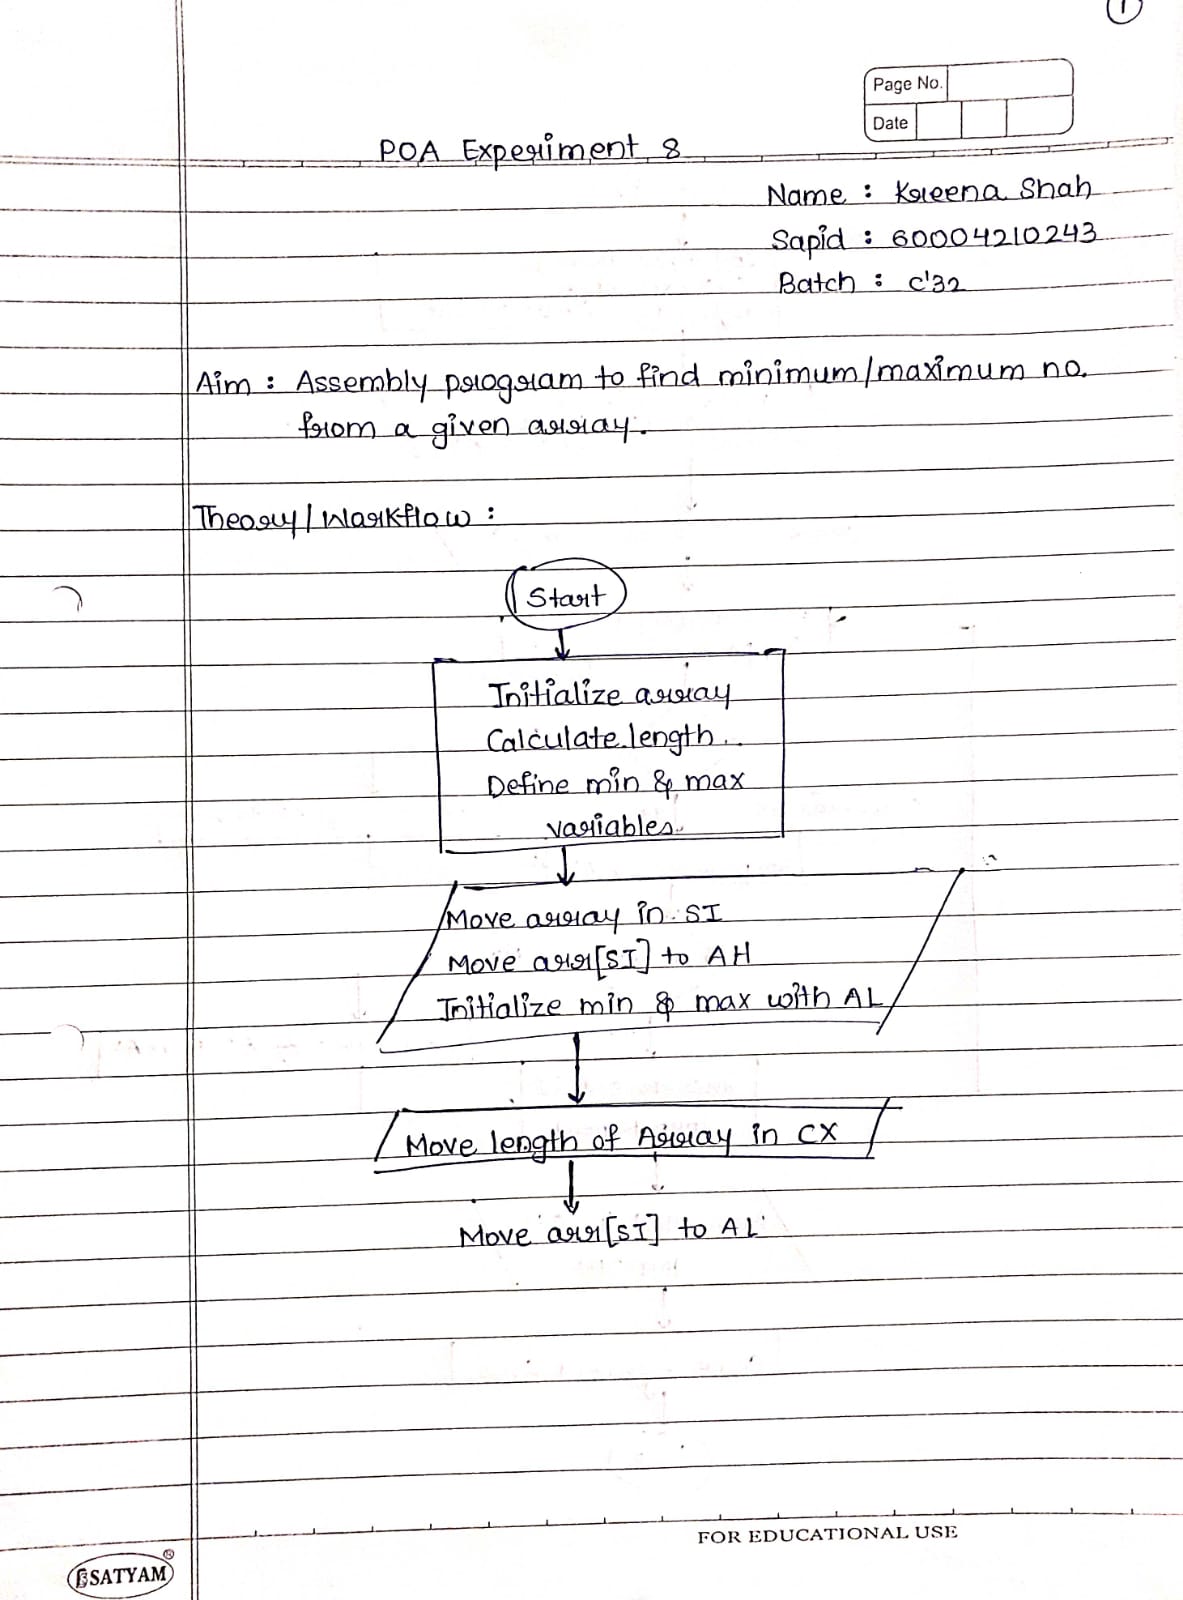 1
Page No.
Date
POA Experiment 8
Name : Kreena Shah
Sapid : 60004210243
Batch : C'32
Aim : Assembly program to find minimum/maximum no.
from a given array.
Theory/Workflow :
Start
Initialize array
Calculate length
Define min & max
variables.
Move array in SI
Move arr[SI] to AH
Initialize min & max with AL
Move length of Array in CX
Move arr[SI] to AL
FOR EDUCATIONAL USE
SATYAM